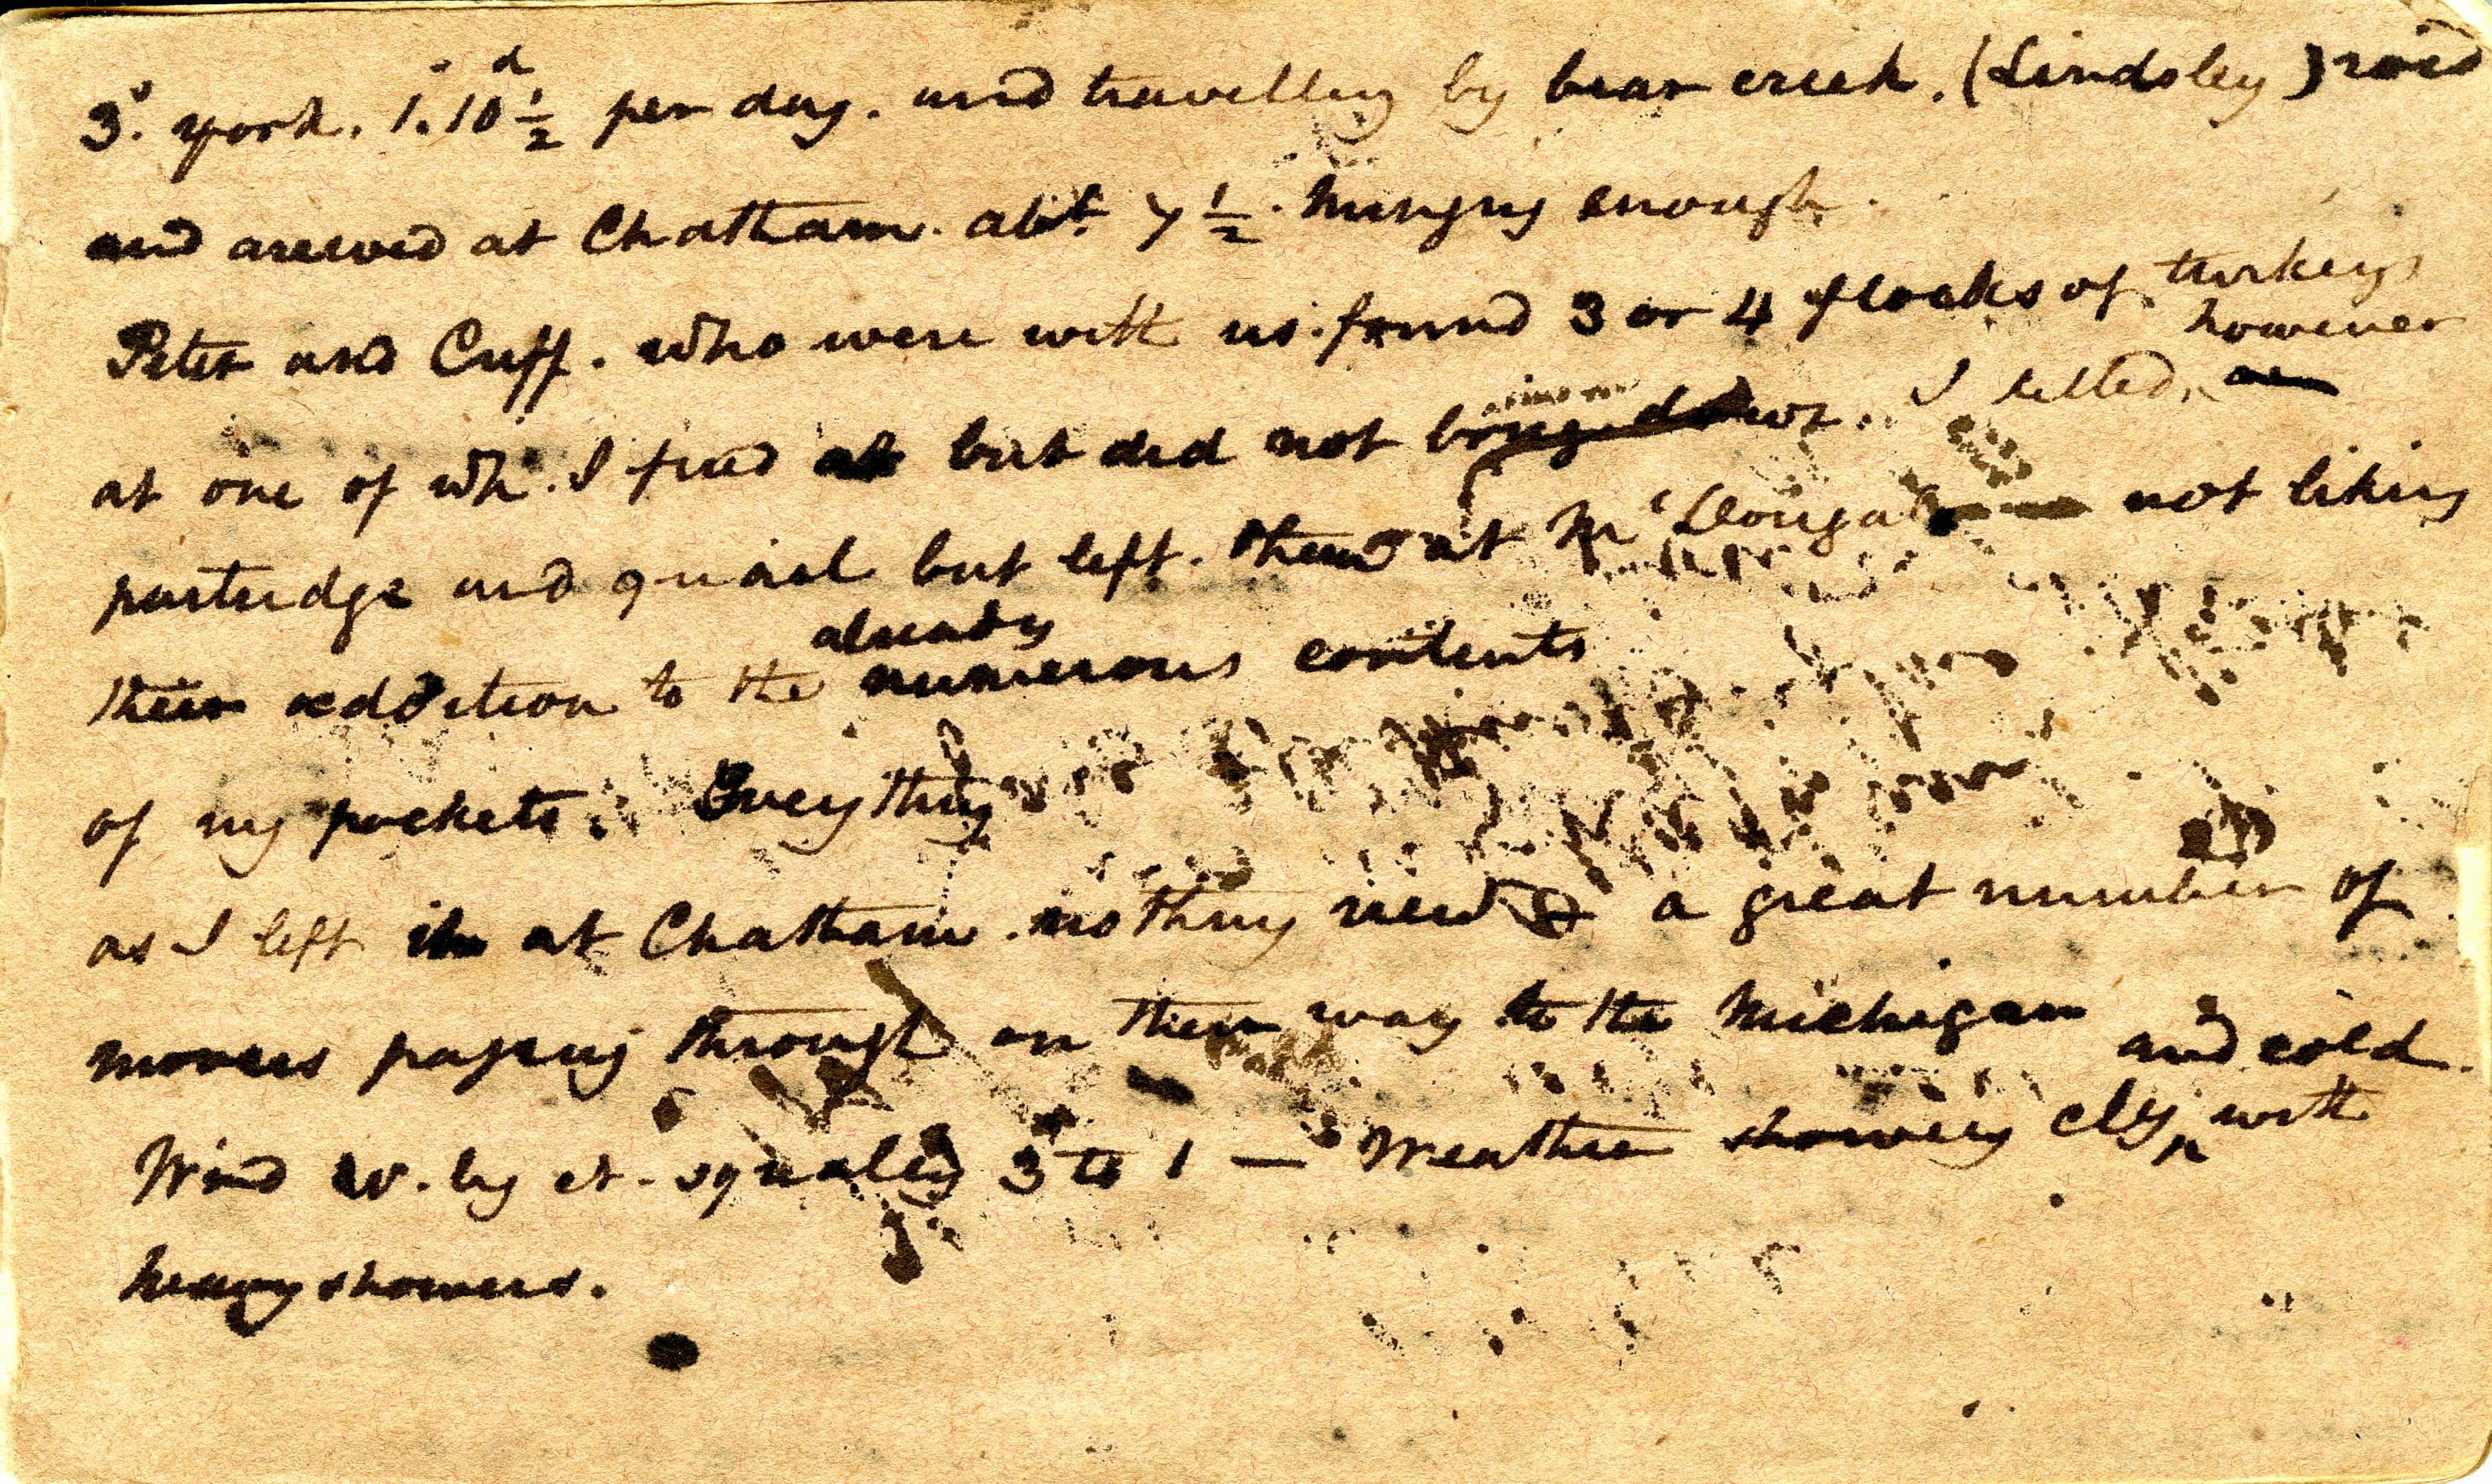 3s. york. 1.10d ½ per day. and travelling by bear creek. (Lindsley) road
and arrived at Chatham. abt. 7 ½. hungry enough.
Peter and Cuff. who were with us. found 3 or 4 flocks of turkeys
at one of wh. I fired but did not bring down. I killed, however
partridge and quail but left. them at McDougals not liking
their addition to the already numerous contents
of my pockets. Every thing
as I left it at Chatham. nothing new & a great number of
movers passing through on their way to the Michigan
Wind W. by st. squally 3 to 1 — Weather showery cldy and cold. with
heavy showers.